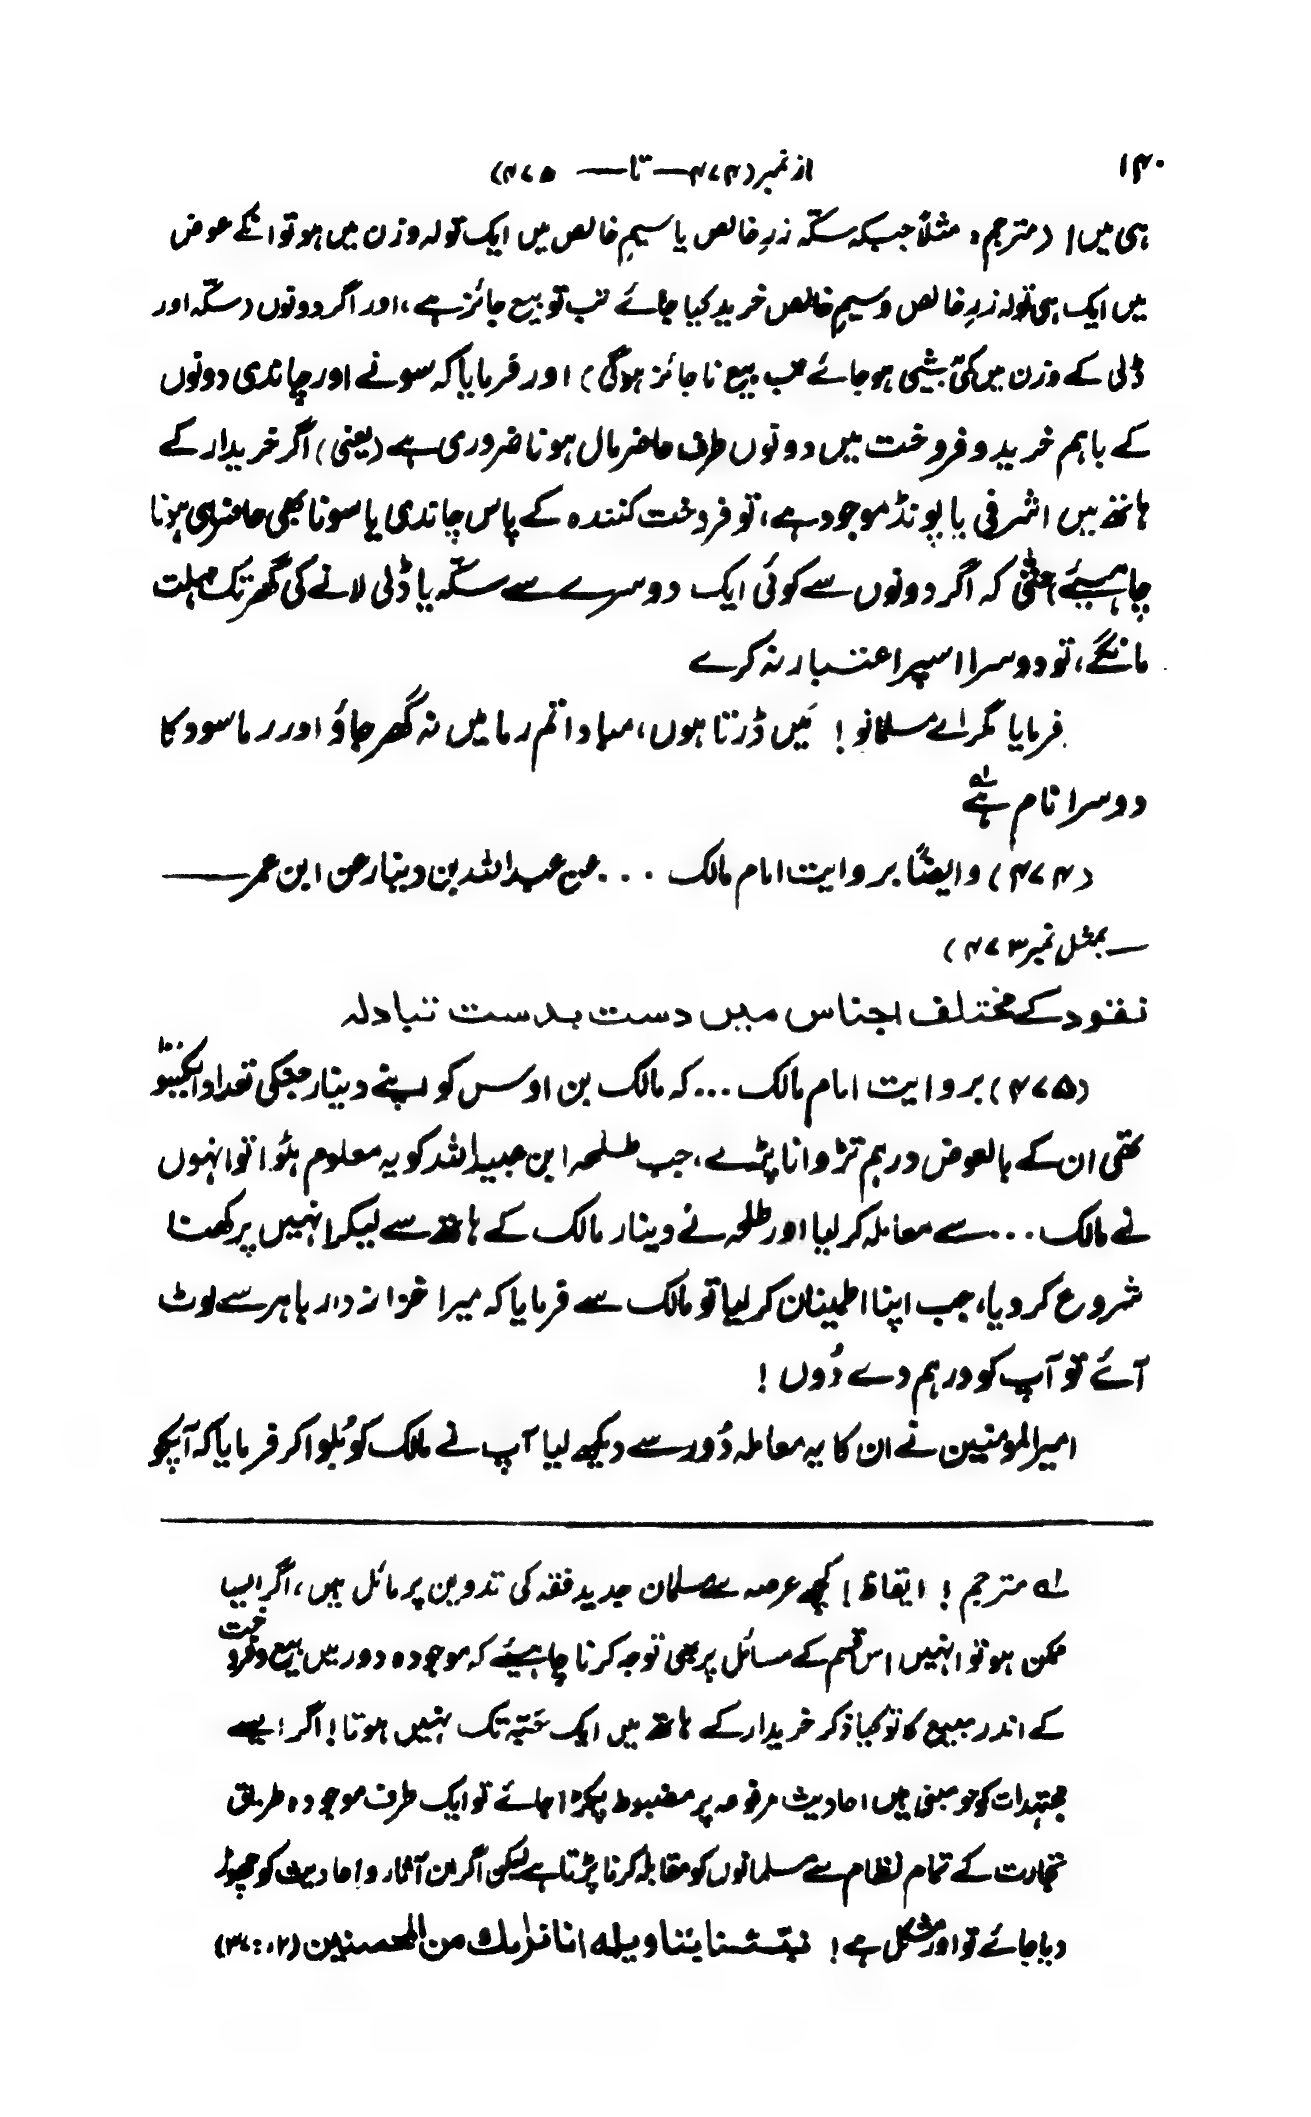 ۱۴۰
از نمبر (۴۷۴ — تا — ۴۷۵)
ہی میں! (مترجم، مثلاً جبکہ سکّہ زرِ خالص یا سیمِ خالص میں ایک تولہ وزن میں ہو تو انکے عوض
میں ایک ہی تولہ زرِ خالص و سیمِ خالص خرید کیا جائے تب تو بیع جائز ہے، اور اگر دونوں (سکّہ اور
ڈلی کے وزن میں کمی بیشی ہو جائے تب بیع ناجائز ہوگی) اور فرمایا کہ سونے اور چاندی دونوں
کے باہم خرید و فروخت میں دونوں طرف حاضر مال ہونا ضروری ہے (یعنی) اگر خریدار کے
ہاتھ میں اشرفی یا پونڈ موجود ہے، تو فروخت کنندہ کے پاس چاندی یا سونا بھی حاضر ہی ہونا
چاہیئے حتٰی کہ اگر دونوں سے کوئی ایک دوسرے سے سکّہ یا ڈلی لانے کی گھر تک مہلت
مانگے، تو دوسرا اسپر اعتبار نہ کرے
فرمایا مگر اے مسلمانو! مَیں ڈرتا ہوں، مبادا تم رما میں نہ گھر جاؤ اور رما سود کا
دوسرا نام ہے لہ
(۴۷۴) و ایضًا بروایت امام مالک ... عن عبداللہ بن دینار عن ابن عمر ——
— بمثل نمبر ۴۷۳)
نقود کے مختلف اجناس میں دست بدست تبادلہ
(۴۷۵) بروایت امام مالک ... کہ مالک بن اوس کو اپنے دینار جنکی تعداد ایکسو
تھی ان کے بالعوض درہم تڑوانا پڑے، جب طلحہ ابن عبیداللہ کو یہ معلوم ہئوا تو انہوں
نے مالک ... سے معاملہ کر لیا اور طلحہ نے دینار مالک کے ہاتھ سے لیکر انہیں پرکھنا
شروع کر دیا، جب اپنا اطمینان کر لیا تو مالک سے فرمایا کہ میرا خزانہ دار باہر سے لوٹ
آئے تو آپ کو درہم دے دُوں!
امیرالمومنین نے ان کا یہ معاملہ دُور سے دیکھ لیا آپ نے مالک کو بُلوا کر فرمایا کہ آپکو
لہ مترجم! ایقاظ! کچھ عرصہ سے مسلمان جدید فقہ کی تدوین پر مائل ہیں، اگر ایسا
ممکن ہو تو انہیں اس قسم کے مسائل پر بھی توجہ کرنا چاہیئے کہ موجودہ دور میں بیع و فروخت
کے اندر مبیع کا تو کیا ذکر خریدار کے ہاتھ میں ایک حَبّہ تک نہیں ہوتا! اگر ایسے
مجتہدات کو جو مبنی ہیں احادیث مرفوعہ پر مضبوط پکڑا جائے تو ایک طرف موجودہ طریق
تجارت کے تمام نظام سے مسلمانوں کو مقابلہ کرنا پڑتا ہے لیکن اگر ان آثار و احادیث کو چھوڑ
دیا جائے تو اور مشکل ہے! نبئنا بتاویلہ انا نرٰىك من المحسنین (۱۲:۳۶)